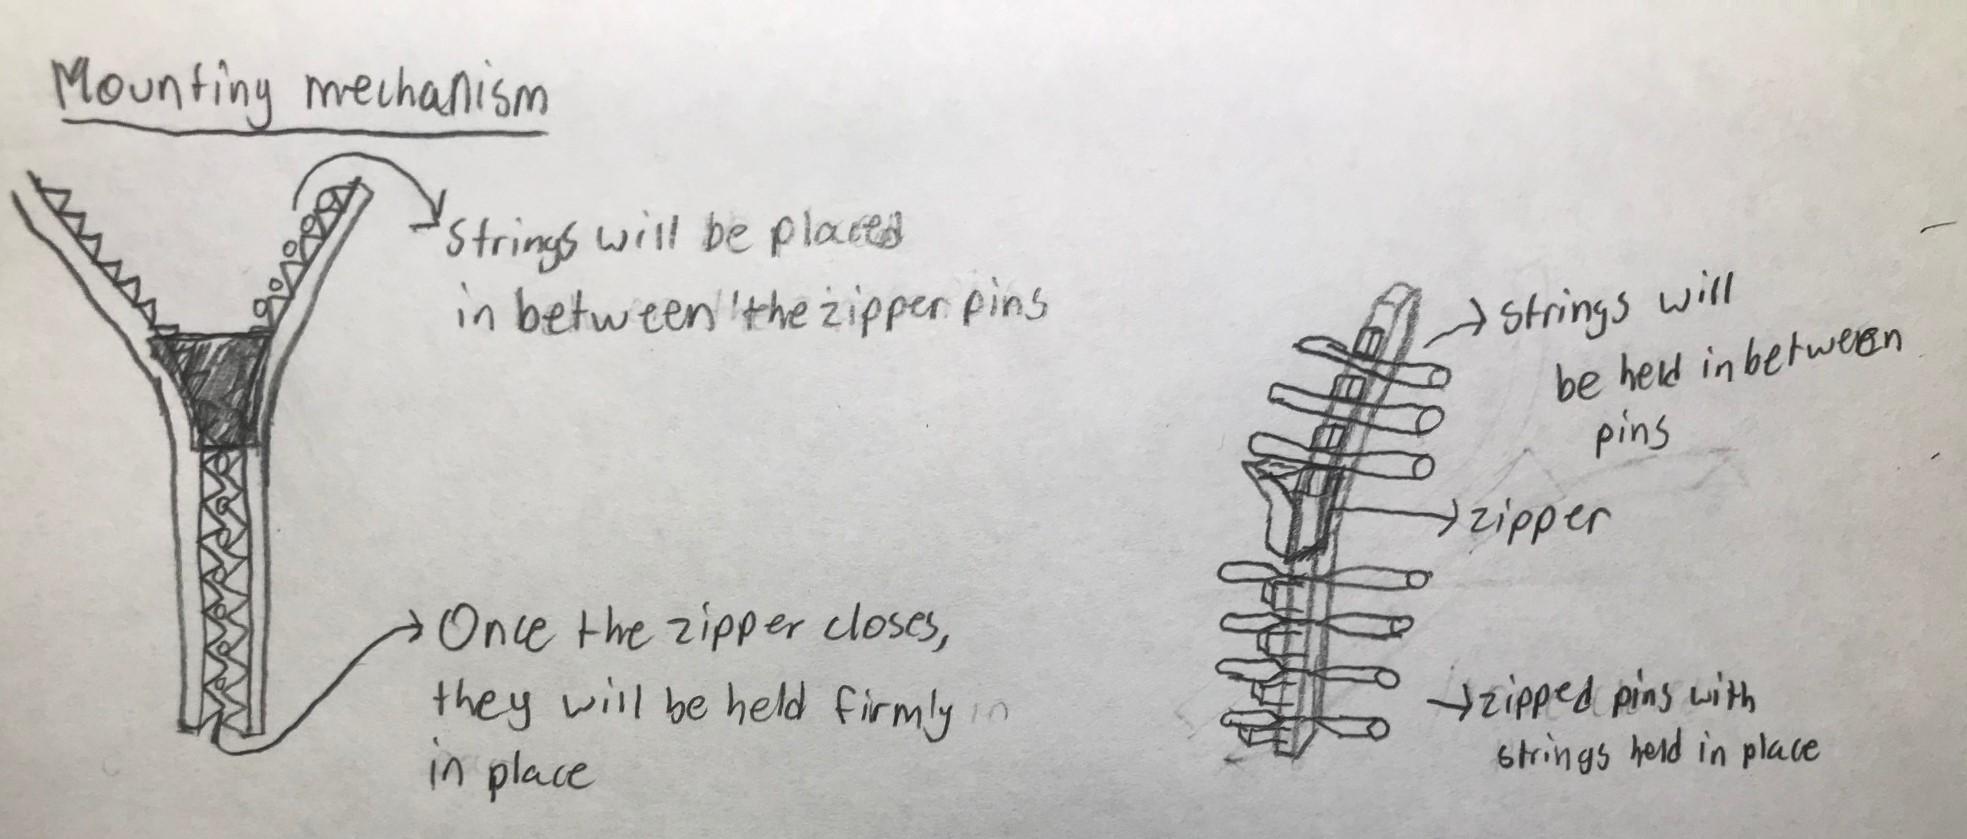 Mounting mechanism
Strings will be placed
in between the zipper pins
Once the zipper closes,
they will be held firmly in
in place
strings will
be held in between
pins
zipper
zipped pins with
strings held in place